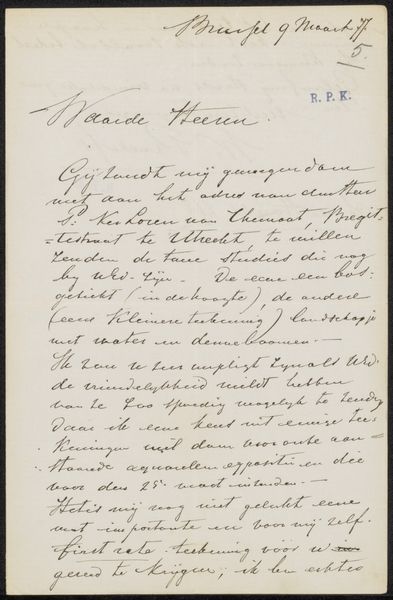 Brussel 9 Maart 77.
5.
R. P. K.
Waarde Heeren.
Gij zoudt mij genoegen doen
met aan het adres van den Heer
P. Verloren van Themaat, Brigit-
testraat te Utrecht, te willen
zenden de twee studies die nog
by UEd. zijn. De eene een bos-
gezicht (in de hoogte), de andere
(eene kleinere teekening) landschapje
met water en denneboomen. —
Ik zou u zeer verpligt zijn als UEd.
de vriendelijkheid wildt hebben
van ze zoo spoedig mogelijk te zenden
daar ik eene keus uit eenige tee-
keningen wil doen voor onze aan-
staande aquarellen expositie en die
voor den 25n maart inzenden. —
Het is mij nog niet gelukt eene
wat importante en voor mij zelf.
first rate teekening vóór u
gereed te krijgen; ik ben echter